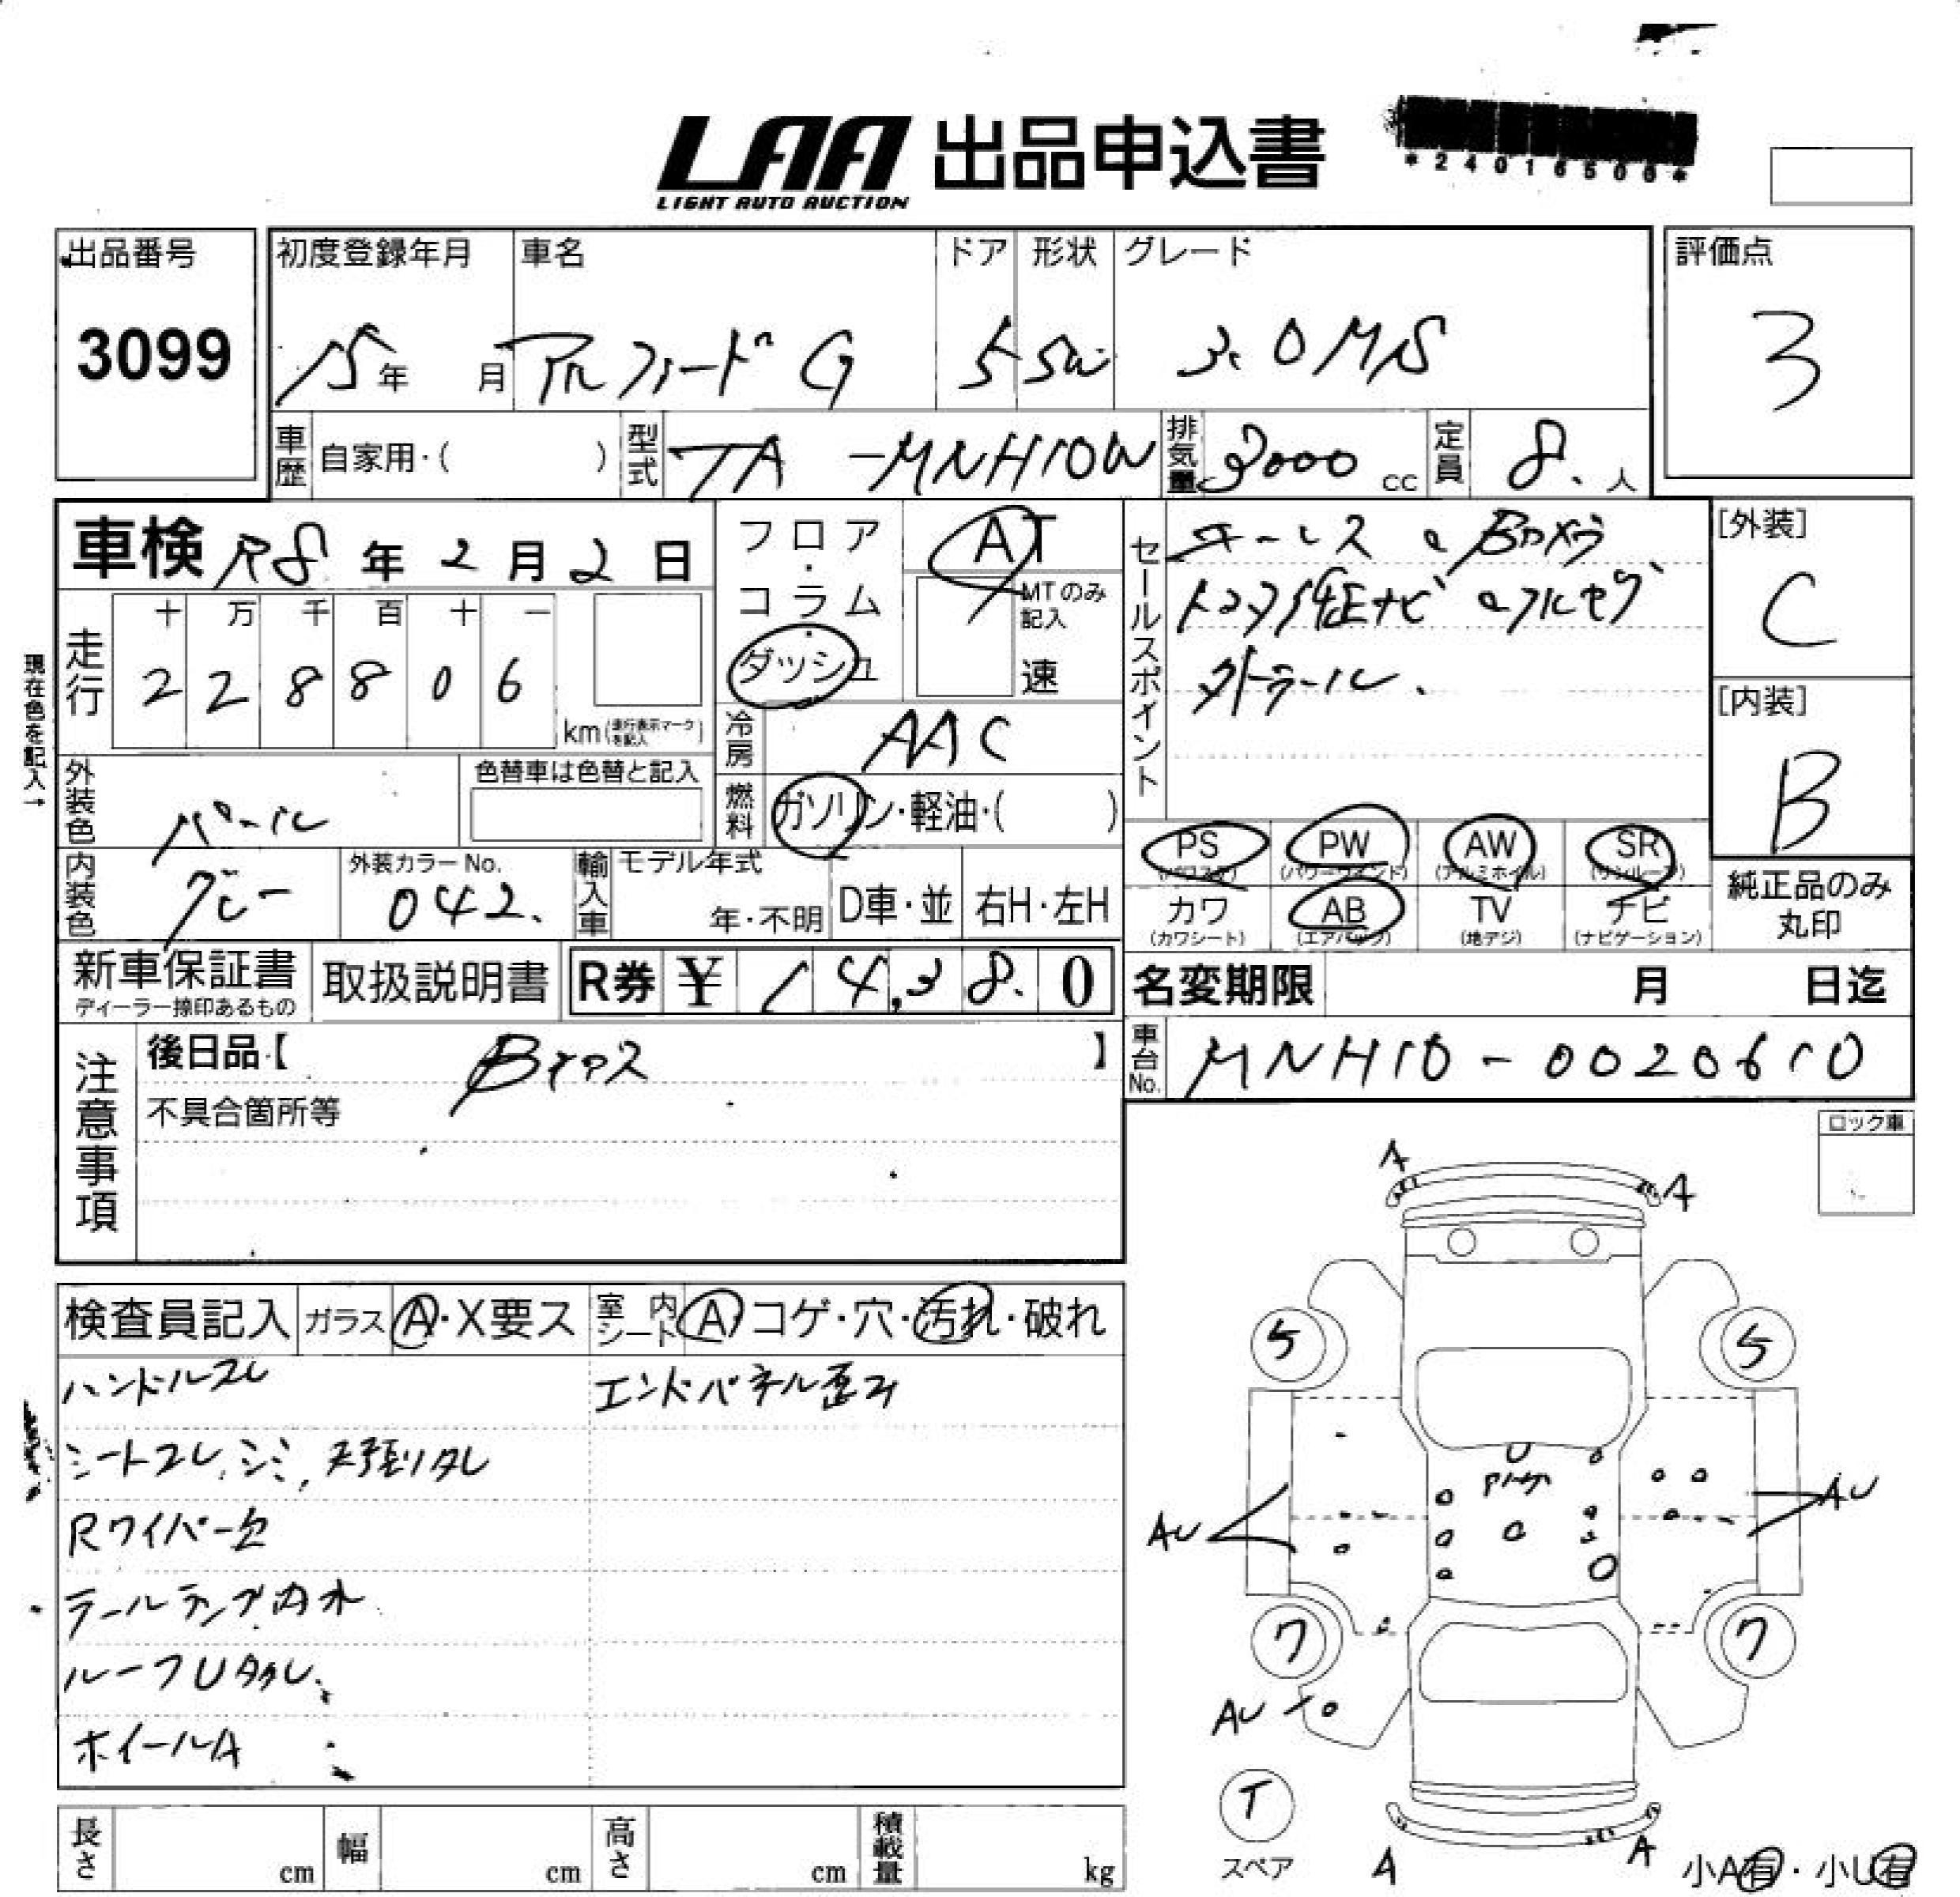 LAA 出品申込書
LIGHT AUTO AUCTION
*24016506*
出品番号
3099
初度登録年月 車名 ドア 形状 グレード
15年 月 アルファード G 5 SW 3.0 MS
評価点
3
車歴 自家用・( ) 型式 TA-MNH10W 排気量 3000 cc 定員 8. 人
車検 R8年2月2日
フロア・コラム・ダッシュ
AT
MTのみ記入
速
セールスポイント
キーレス Bカメラ
社正ナビ フルセグ
[外装]
C
[内装]
B
現在色を記入→
走行
十 万 千 百 十 一
2 2 8 8 0 6
km (走行表示マークを記入)
冷房 AAC
外装色 パール
色替車は色替と記入
燃料 ガソリン・軽油・( )
内装色 グレー
外装カラーNo.
042.
輸入車 モデル年式
年・不明 D車・並 右H・左H
PS PW AW SR
(パワステ) (パワーウインド) (アルミホイル) (サンルーフ)
カワ AB TV ナビ
(カワシート) (エアバッグ) (地デジ) (ナビゲーション)
純正品のみ
丸印
新車保証書
ディーラー捺印あるもの
取扱説明書
R券 ¥ 14,380
名変期限 月 日迄
車台No. MNH10-0020610
注意事項
後日品【 】
不具合箇所等
ロック車
検査員記入 ガラス A・X要ス 室内シート A コゲ・穴・汚れ・破れ
ハンドルスレ
シートスレ、シミ、天張りタレ
Rワイパー欠
テールランプ内水
ルーフU
ホイールA
エンドパネル歪み
A A
5 5
U
AU AU
7 7
AU
T
スペア
A A
小A有・小U有
長さ cm 幅 cm 高さ cm 積載量 kg